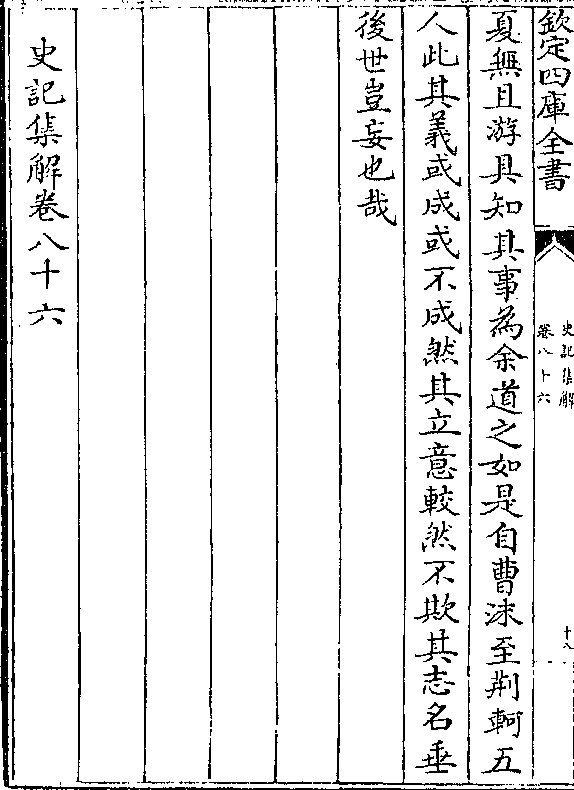 欽定四庫全書
史記集解
卷八十六
十八
夏無且游具知其事為余道之如是自曹沬至荆軻五
人此其義或成或不成然其立意較然不欺其志名垂
後世豈妄也哉
史記集解卷八十六